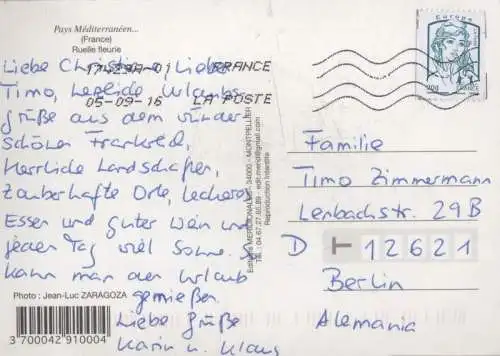 Pays Méditerranéen...
(France)
Ruelle fleurie
Liebe Christiane, Lieber
Timo, herzliche Urlaubs
grüße aus dem wunder-
schönen Frankreich,
Herrliche Landschaften,
Zauberhafte Orte, leckeres
Essen und guter Wein und
jeden Tag viel Sonne. So
kann man den Urlaub
genießen.
Liebe Grüße
Karin u. Klaus
Photo : Jean-Luc ZARAGOZA
3 700042 910004
17423A-01 FRANCE
05-09-16 LA POSTE
Europe
20g FRANCE
MERIDIONALES - 34000 - MONTPELLIER
Tél. 04.67.27.85.89 - edt.merid@gmail.com
Reproduction Interdite
Familie
Timo Zimmermann
Lenbachstr. 29B
D 12621
Berlin
Alemania